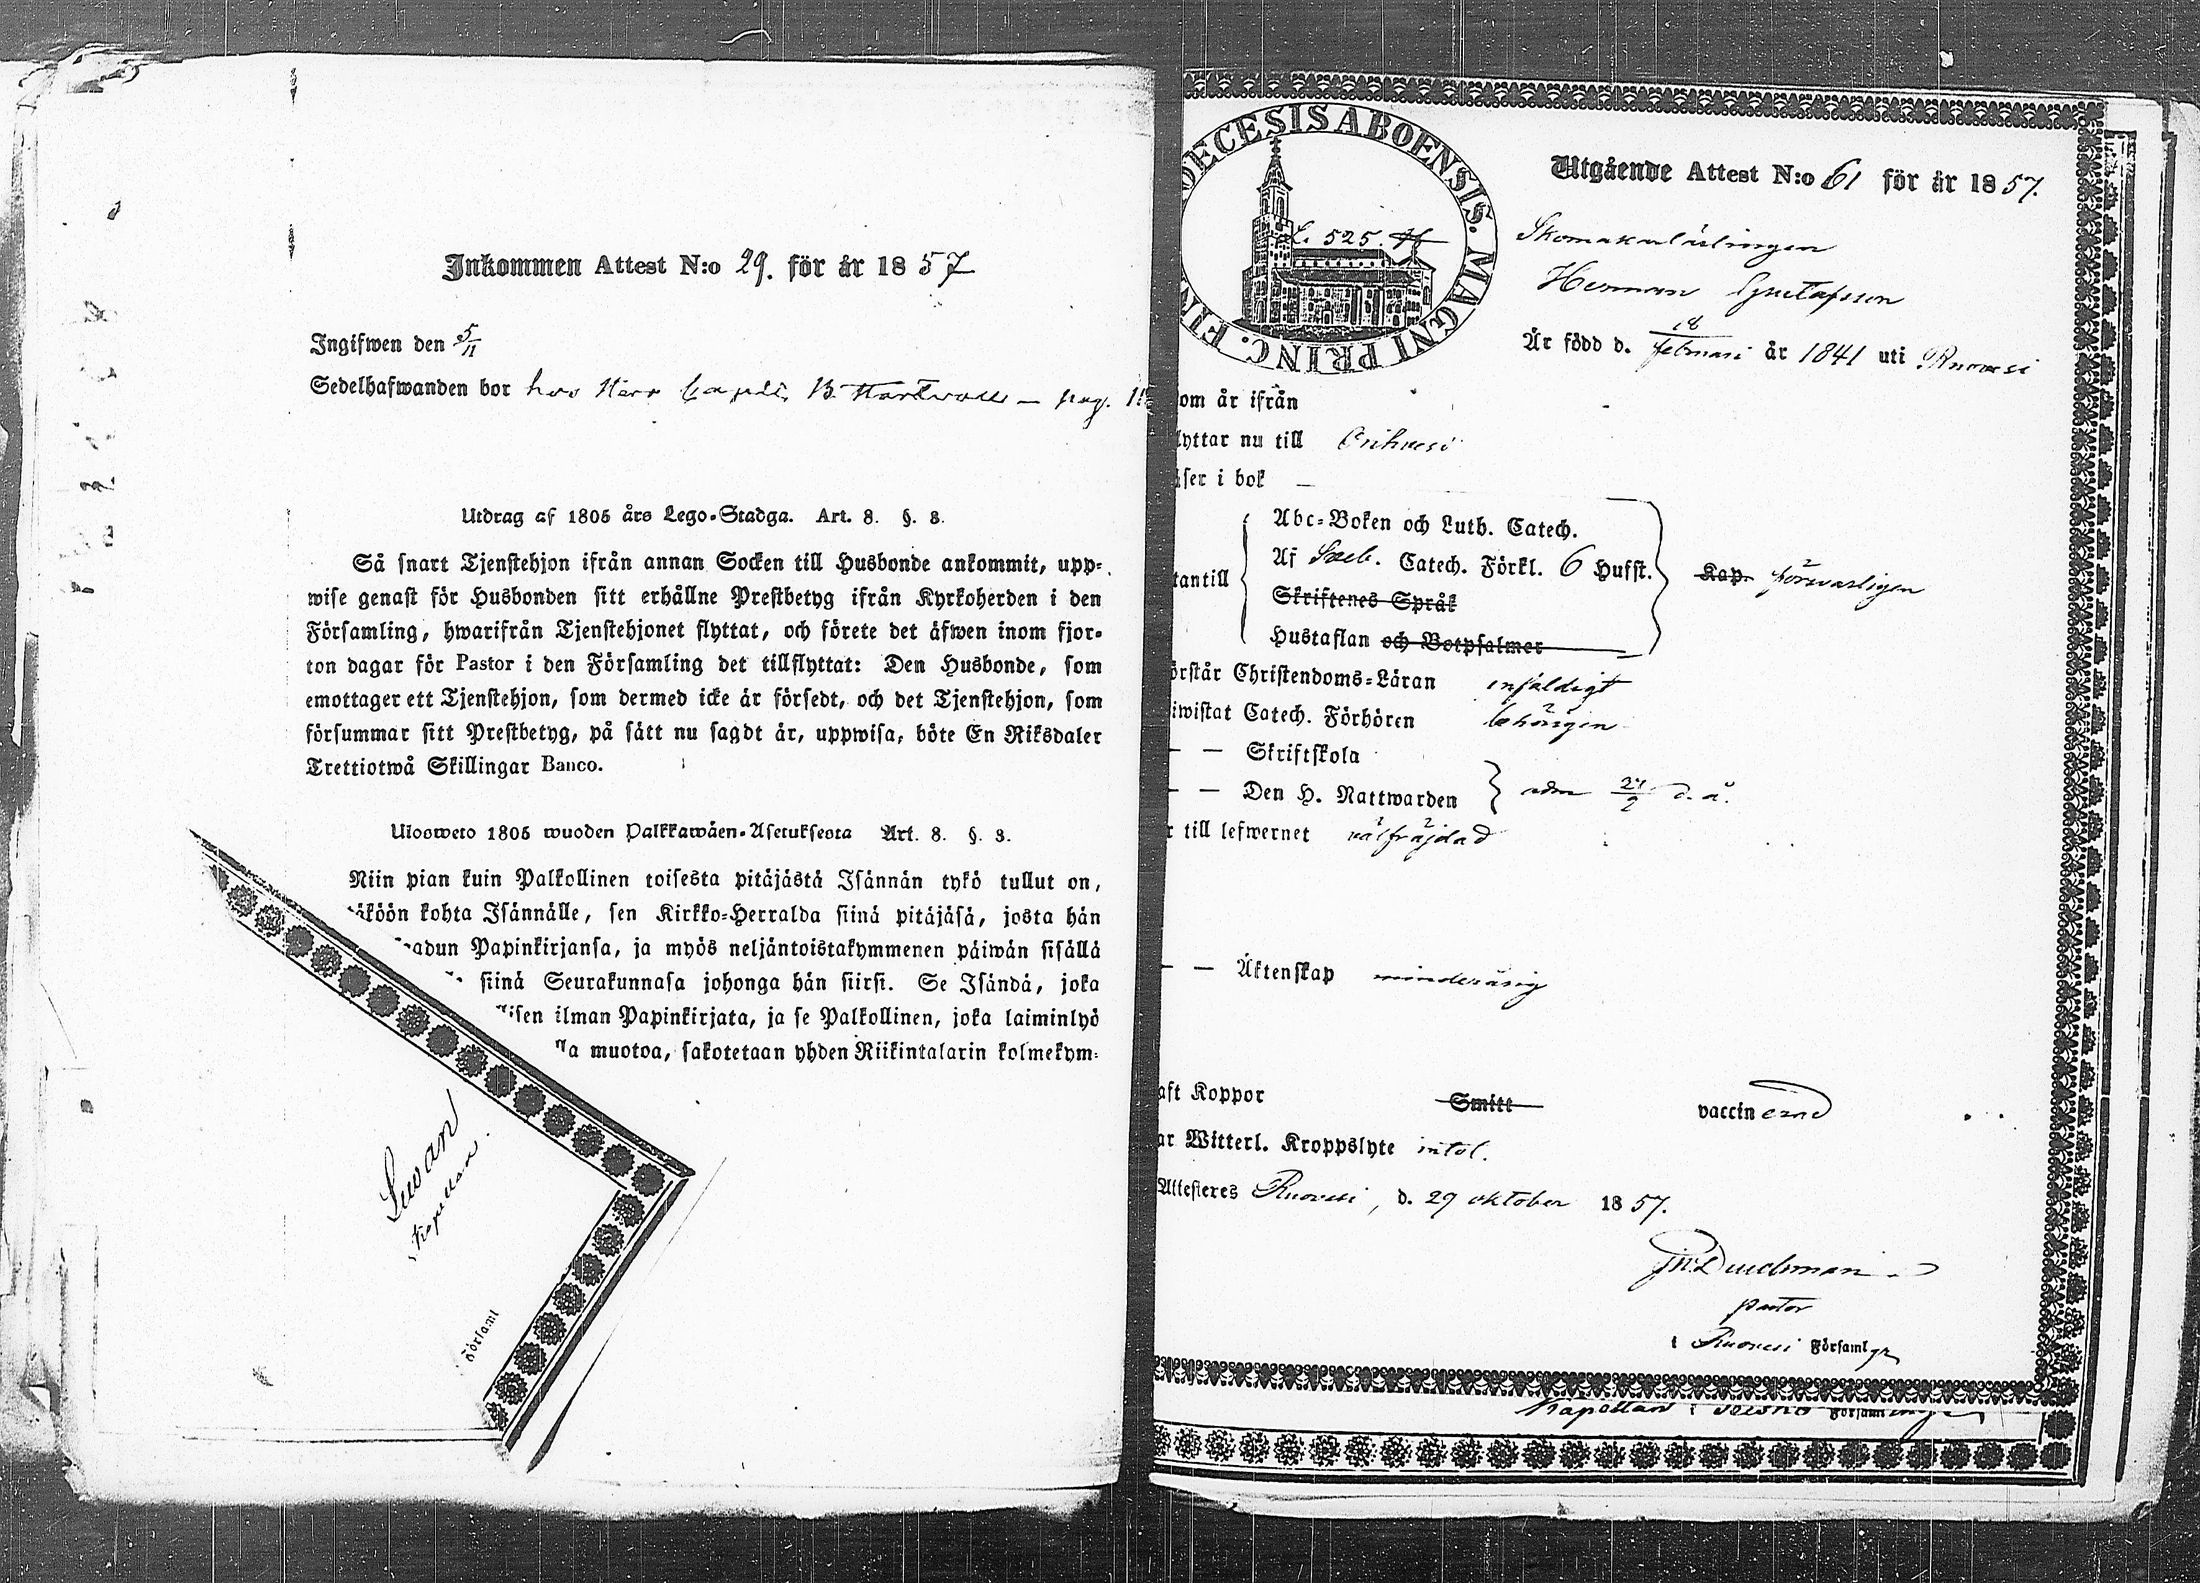 Inkommen Attest N:o 29. för år 1857
Ingifwen den 5/11
Sedelhafwanden bor hos Herr Capit. B. Hartwall — pag.
Utdrag af 1805 års Lego-Stadga. Art. 8. §. 3.
Så snart Tjenstehjon ifrån annan Socken till Husbonde ankommit, upp-
wise genast för Husbonden sitt erhållne Prestbetyg ifrån Kyrkoherden i den
Församling, hwarifrån Tjenstehjonet flyttat, och förete det äfwen inom fjor-
ton dagar för Pastor i den Församling det tillflyttat: Den Husbonde, som
emottager ett Tjenstehjon, som dermed icke är försedt, och det Tjenstehjon, som
försummar sitt Prestbetyg, på sätt nu sagdt är, uppwisa, böte En Riksdaler
Trettiotwå Skillingar Banco.
Ulosweto 1805 wuoden Palkkawäen-Asetuksesta Art. 8. §. 3.
Niin pian kuin Palkollinen toisesta pitäjästä Isännän tykö tullut on,
äköön kohta Isännälle, sen Kirkko-Herralda siinä pitäjäsä, josta hän
adun Papinkirjansa, ja myös neljäntoistakymmenen päiwän sisällä
siinä Seurakunnasa johonga hän siirsi. Se Isändä, joka
llisen ilman Papinkirjata, ja se Palkollinen, joka laiminlyö
lla muotoa, sakotetaan yhden Riikintalarin kolmekym-
Kapellan
Församl
OECESIS ABOENSIS. MAGNI PRINC. FIN
L. 525.
Utgående Attest N:o 61 för år 1857.
Skomakarlärlingen
Herman Gustafsson
År född d. 18 februari år 1841 uti Ruovesi
om är ifrån
lyttar nu till Orihvesi
äser i bok —
tantill
Abc-Boken och Luth. Catech.
Af Sveb. Catech. Förkl. 6 Hufst.
Skriftenes Språk
Hustaflan och Botpsalmer
Kap. försvarligen
örstår Christendoms-Läran enfaldigt
iwistat Catech. Förhören behörigen
— — Skriftskola
— — Den H. Nattwarden adm 27/9 d. å.
r till lefwernet välfräjdad
— — Äktenskap minderårig
aft Koppor Smitt vaccinerad
ar Witterl. Kroppslyte intet.
Attesteres Ruovesi, d. 29 oktober 1857.
pastor
i Ruovesi Församlgn
Kapellan i Församling